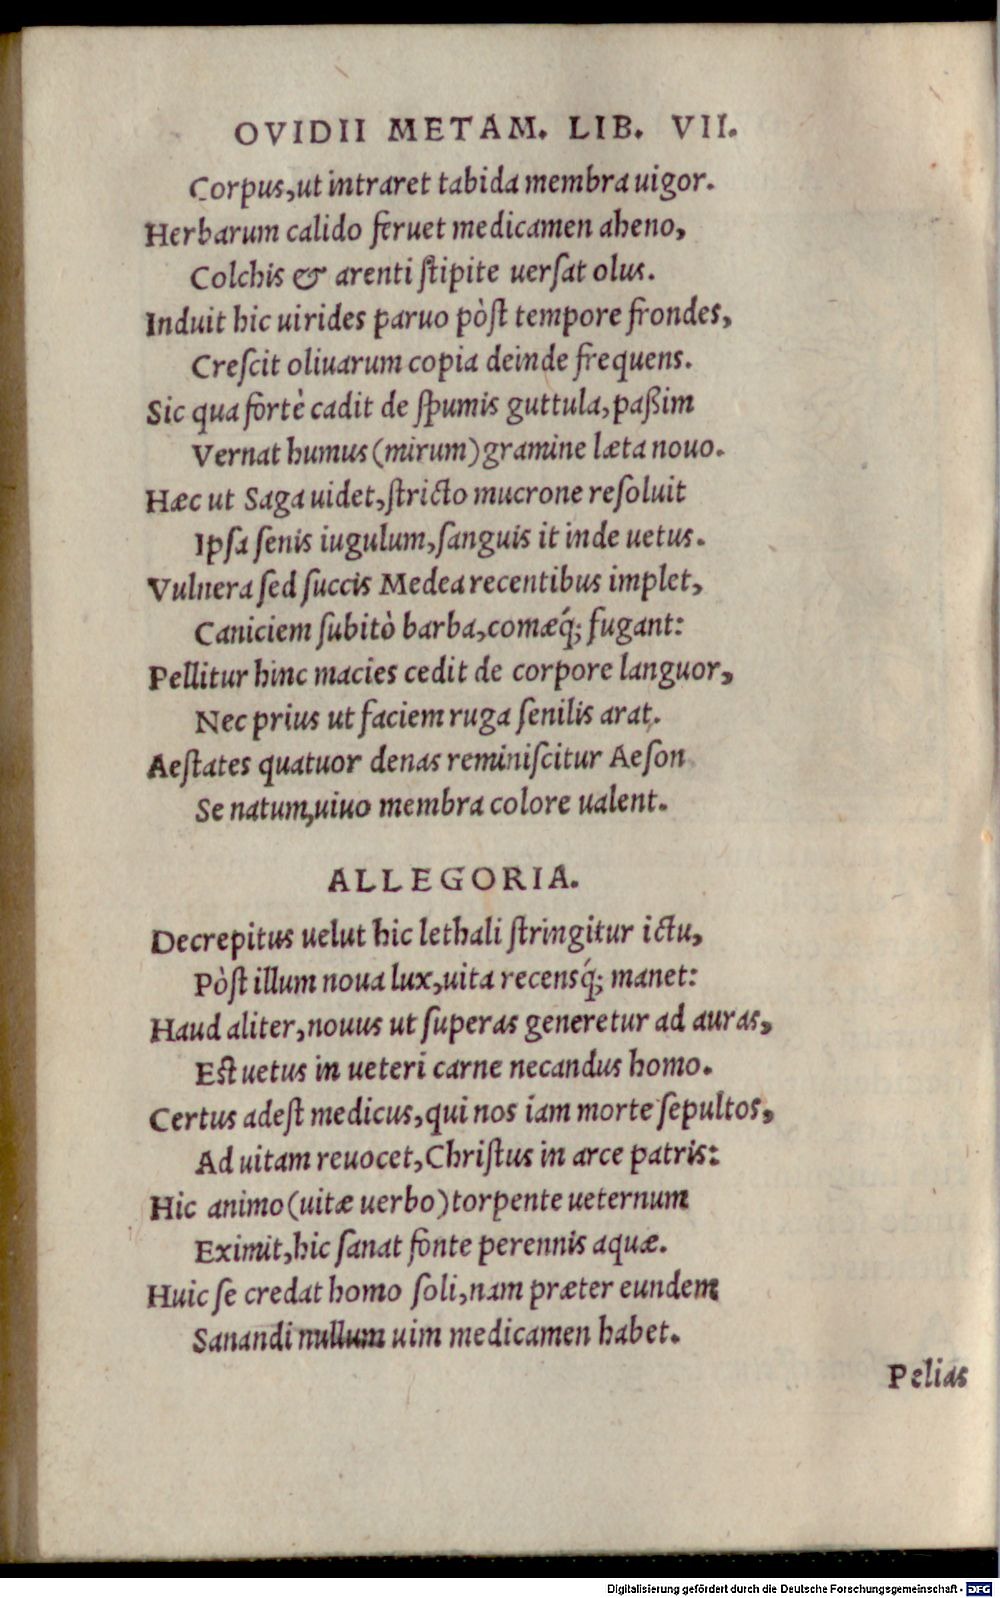 OVIDII METAM. LIB. VII.
Corpus, ut intraret tabida membra uigor.
Herbarum calido feruet medicamen aheno,
Colchis & arenti ſtipite uerſat olus.
Induit hic uirides paruo pòſt tempore frondes,
Creſcit oliuarum copia deinde frequens.
Sic qua fortè cadit de ſpumis guttula, paßim
Vernat humus (mirum) gramine læta nouo.
Hæc ut Saga uidet, ſtricto mucrone reſoluit
Ipſa ſenis iugulum, ſanguis it inde uetus.
Vulnera ſed ſuccis Medea recentibus implet,
Caniciem ſubitò barba, comæq́; fugant:
Pellitur hinc macies cedit de corpore languor,
Nec prius ut faciem ruga ſenilis arat.
Aeſtates quatuor denas reminiſcitur Aeſon
Se natum, uiuo membra colore ualent.
ALLEGORIA.
Decrepitus uelut hic lethali ſtringitur ictu,
Pòſt illum noua lux, uita recensq́; manet:
Haud aliter, nouus ut ſuperas generetur ad auras,
Eſt uetus in ueteri carne necandus homo.
Certus adeſt medicus, qui nos iam morte ſepultos,
Ad uitam reuocet, Chriſtus in arce patris:
Hic animo (uitæ uerbo) torpente ueternum
Eximit, hic ſanat fonte perennis aquæ.
Huic ſe credat homo ſoli, nam præter eundem
Sanandi nullum uim medicamen habet.
Pelias
Digitalisierung gefördert durch die Deutsche Forschungsgemeinschaft - DFG